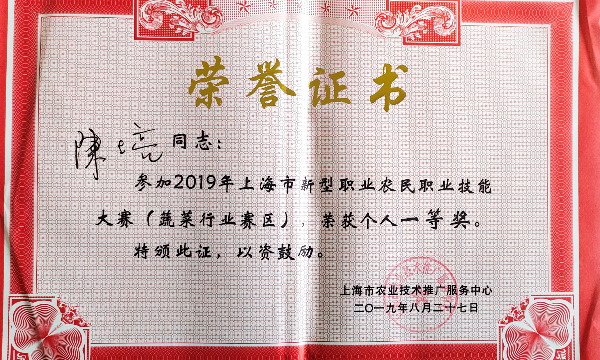 荣誉证书
陳 同志：
参加2019年上海市新型职业农民职业技能
大赛（蔬菜行业赛区），荣获个人一等奖。
特颁此证，以资鼓励。
上海市农业技术推广服务中心
二〇一九年八月二十七日